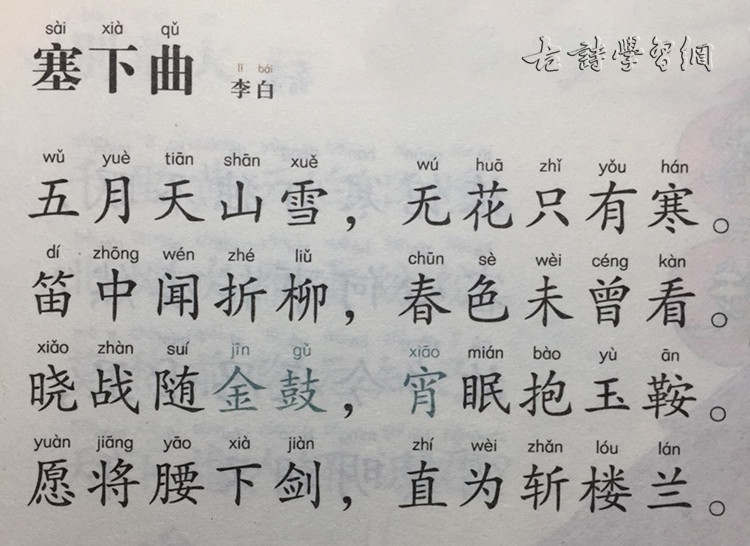 sài xià qǔ
塞下曲
lǐ bái
李白
古詩學習網
wǔ yuè tiān shān xuě wú huā zhǐ yǒu hán
五月天山雪，无花只有寒。
dí zhōng wén zhé liǔ chūn sè wèi céng kàn
笛中闻折柳，春色未曾看。
xiǎo zhàn suí jīn gǔ xiāo mián bào yù ān
晓战随金鼓，宵眠抱玉鞍。
yuàn jiāng yāo xià jiàn zhí wèi zhǎn lóu lán
愿将腰下剑，直为斩楼兰。